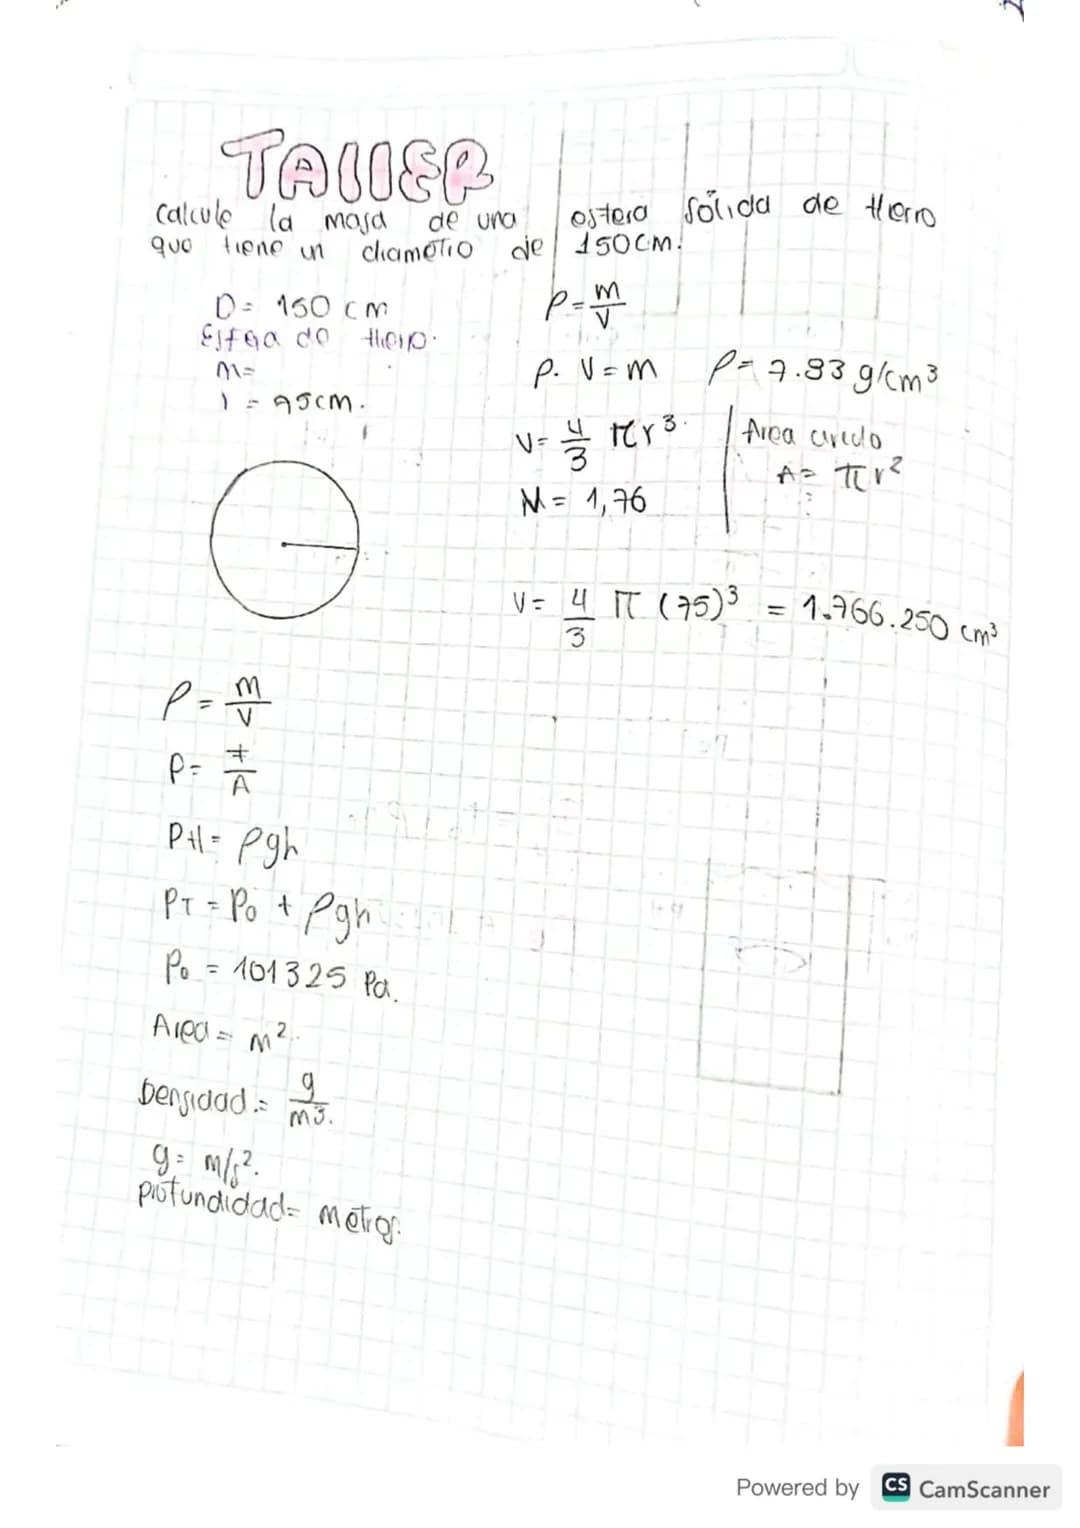 TALLER
Calcule la masa de una esfera sólida de Hierro
que tiene un diametro de 150 cm.
D = 150 cm
Esfera de Hierro.
m=
r = 75cm.
ρ = m/V
ρ. V = m ρ = 7.83 g/cm³
V = 4/3 πr³. Area circulo
A = πr²
M = 1,76
V = 4/3 π (75)³ = 1.766.250 cm³
ρ = m/V
P = F/A
PH = ρgh
PT = Po + ρgh
Po = 101325 Pa.
Area = m².
Densidad = g/m³.
g = m/s².
profundidad = metros.
Powered by CS CamScanner